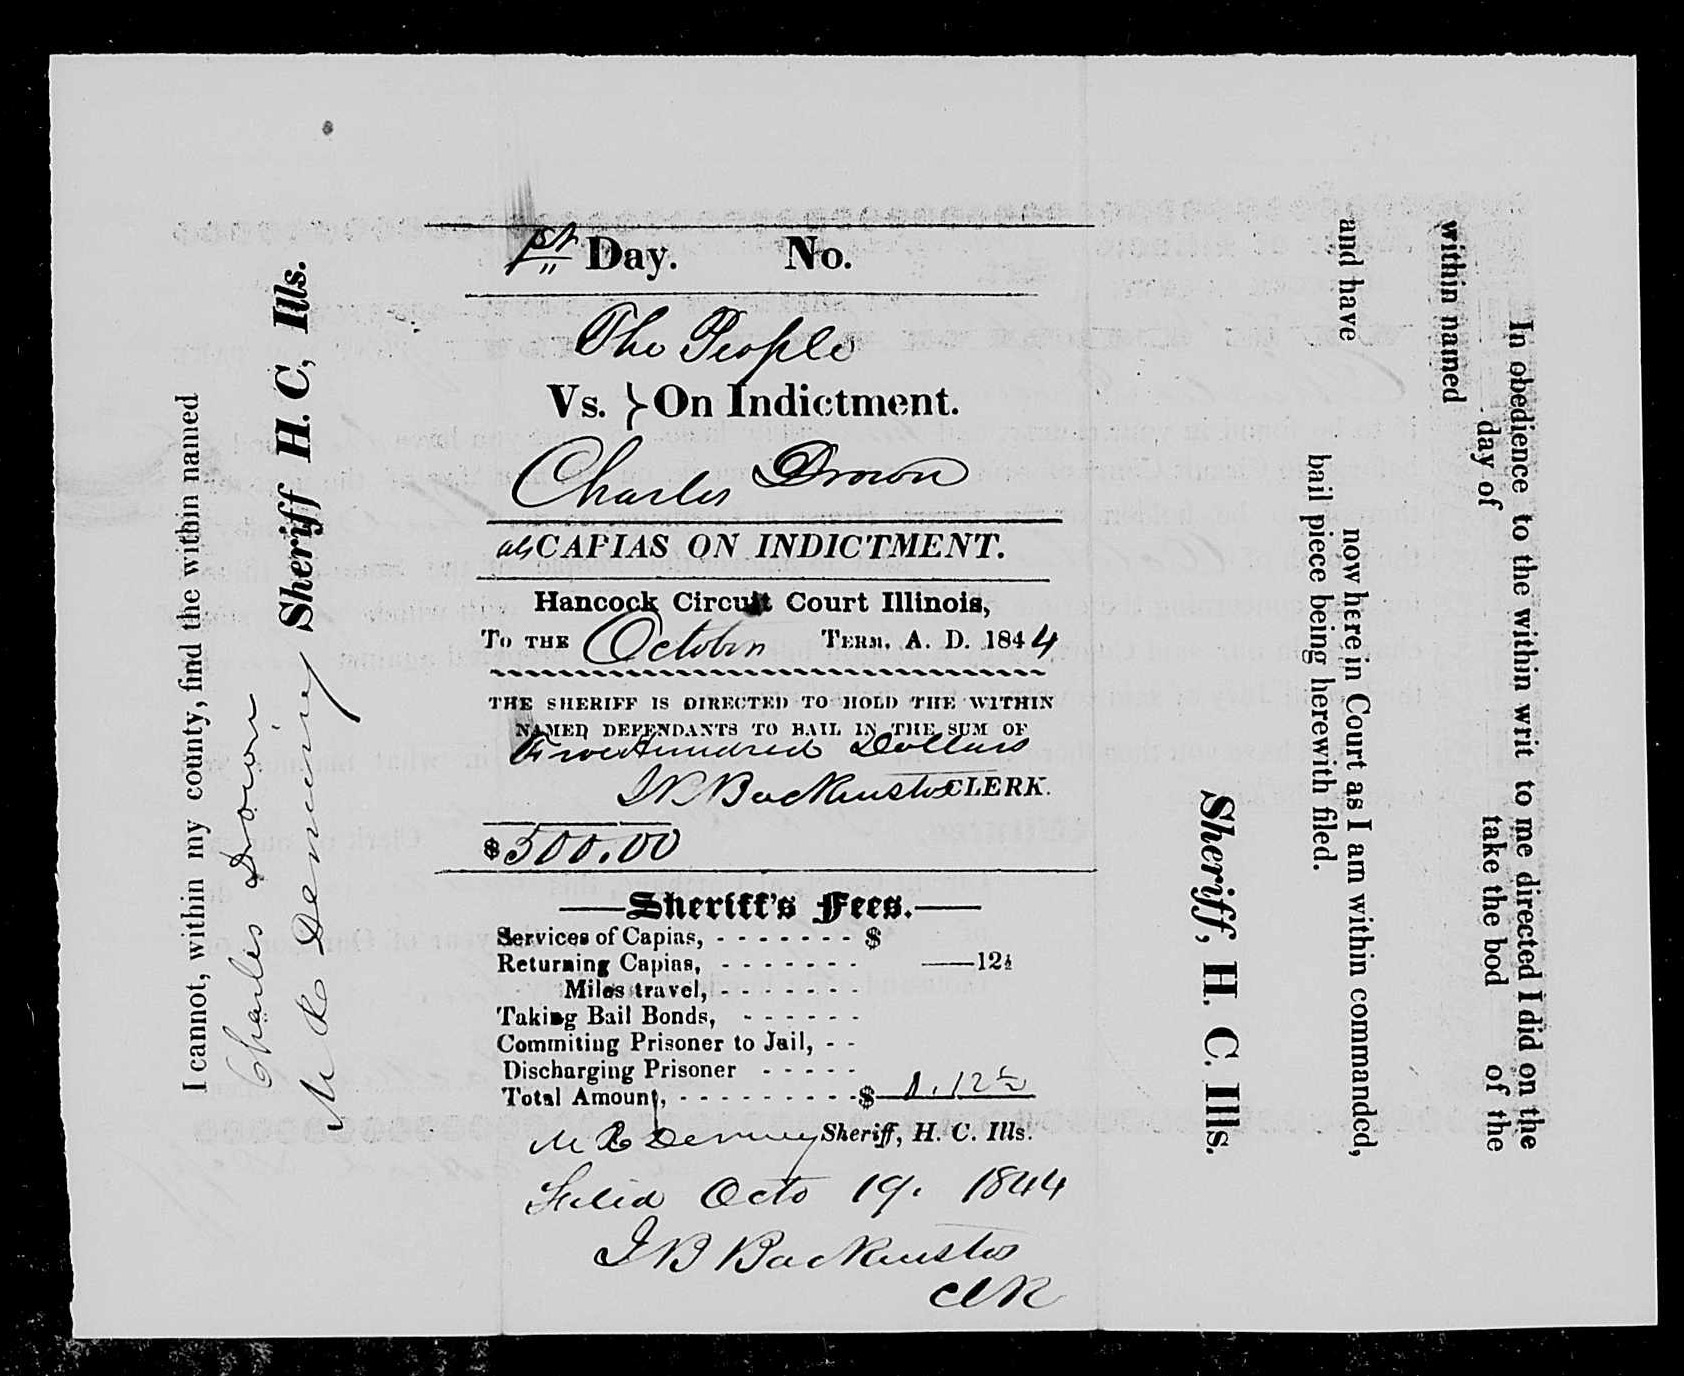 1st Day. No.
The People
Vs. } On Indictment.
Charles Drown
als CAPIAS ON INDICTMENT.
Hancock Circuit Court Illinois,
TO THE October TERM, A. D. 1844
THE SHERIFF IS DIRECTED TO HOLD THE WITHIN
NAMED DEFENDANTS TO BAIL IN THE SUM OF
Five Hundred Dollars
J B Backenstos CLERK.
$500.00
Sheriff's Fees.
Services of Capias, - - - - - - - $
Returning Capias, - - - - - - - 12½
Miles travel, - - - - - - -
Taking Bail Bonds, - - - - - -
Commiting Prisoner to Jail, - -
Discharging Prisoner - - - - -
Total Amount, - - - - - - - - - $ 0.12½
M R Deming Sheriff, H. C. Ills.
Filed Octo 19. 1844
J B Backenstos
Clk
I cannot, within my county, find the within named
Charles Drown
M R Deming Sheriff H. C, Ills.
In obedience to the within writ to me directed I did on the
day of take the bod of the
within named
and have now here in Court as I am within commanded,
bail piece being herewith filed.
Sheriff, H. C. Ills.